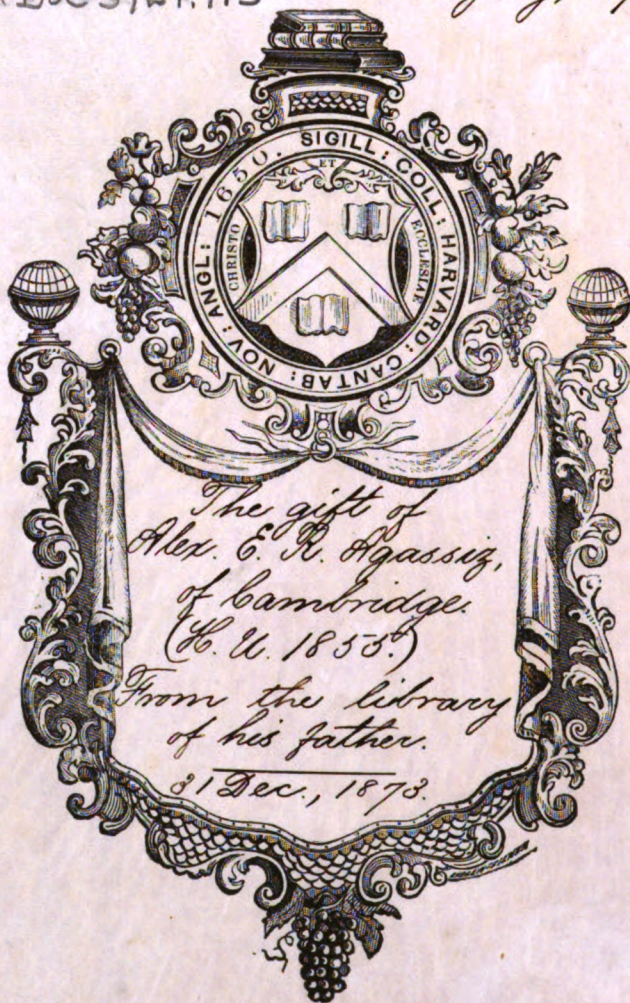 SIGILL: COLL: HARVARD: CANTAB: NOV: ANGL: 1650.
CHRISTO
ET
ECCLESIAE
The gift of
Alex. E. R. Agassiz,
of Cambridge.
(H. U. 1855.)
From the library
of his father.
31 Dec., 1873.